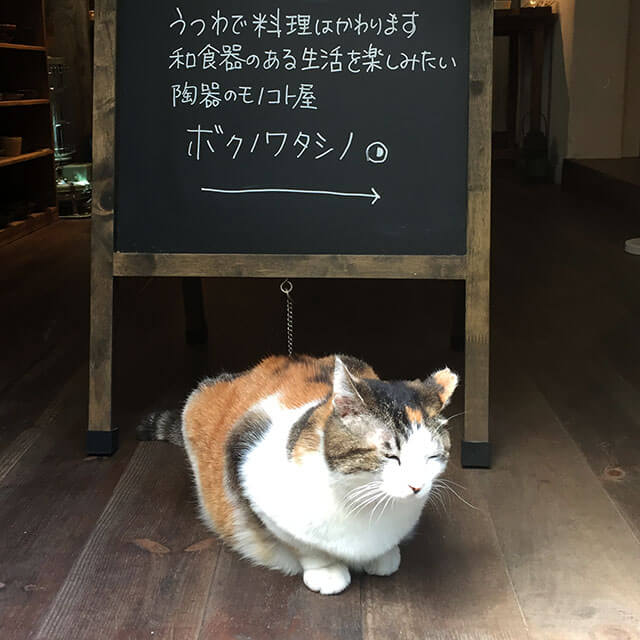 うつわで料理はかわります
和食器のある生活を楽しみたい
陶器のモノコト屋
ボクノワタシノ。